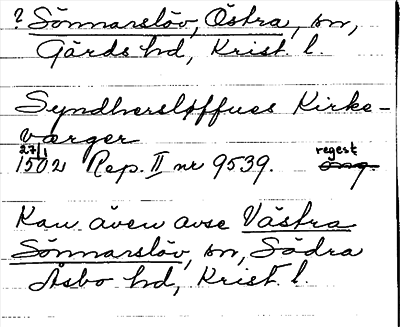 ? Sönnarslöv, Östra, sn,
Gärds hd, Krist. l.
Syndhersløffues Kirke-
værger
27/1
1502 Rep. II nr 9539. regest
Kan även avse Västra
Sönnarslöv, sn, Södra
Åsbo hd, Krist. l.